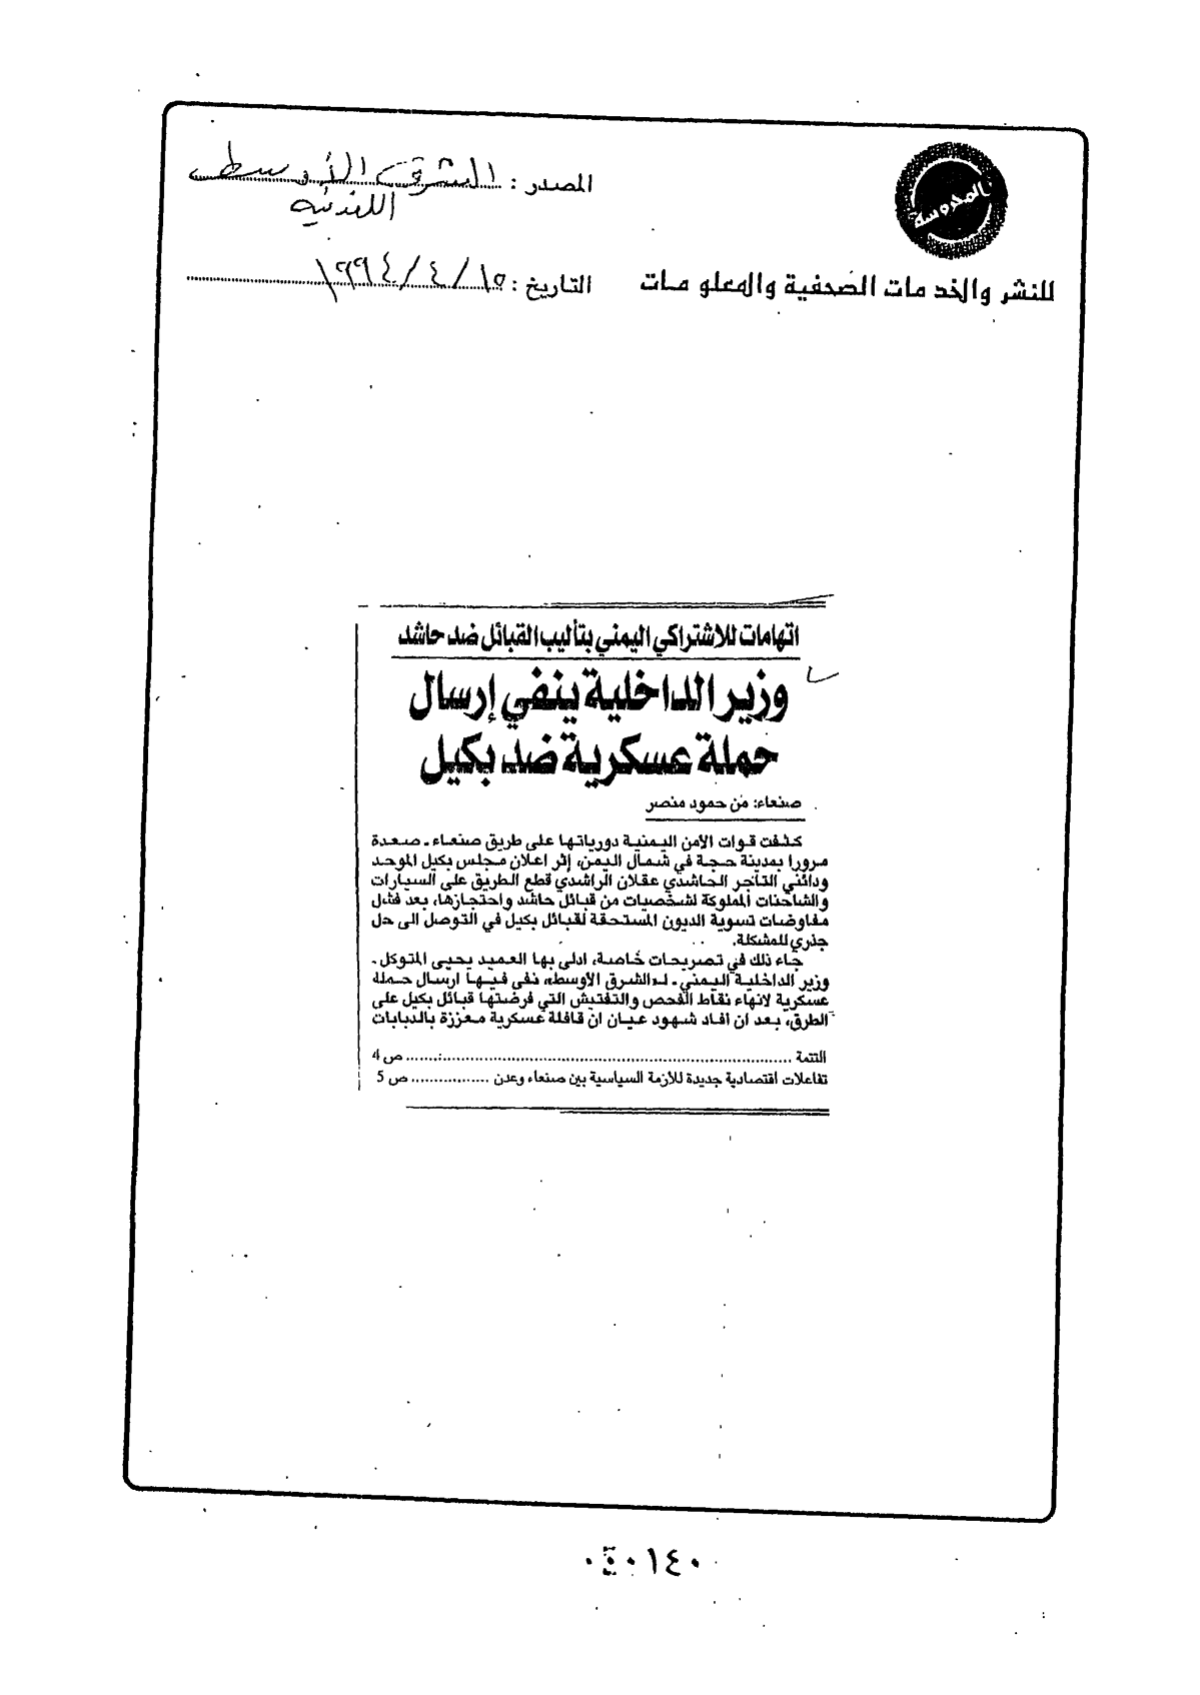 المحروسة
للنشر والخدمات الصحفية والمعلومات
المصدر : الشرق الأوسط
اللندنية
التاريخ : ١٥/٤/١٩٩٤
اتهامات للاشتراكي اليمني بتأليب القبائل ضد حاشد
وزير الداخلية ينفي إرسال
حملة عسكرية ضد بكيل
صنعاء: من حمود منصر
كثفت قوات الأمن اليمنية دورياتها على طريق صنعاء ـ صعدة
مرورا بمدينة حجة في شمال اليمن، إثر اعلان مجلس بكيل الموحد
ودائني التاجر الحاشدي عقلان الراشدي قطع الطريق على السيارات
والشاحنات المملوكة لشخصيات من قبائل حاشد واحتجازها، بعد فشل
مفاوضات تسوية الديون المستحقة لقبائل بكيل في التوصل الى حل
جذري للمشكلة.
جاء ذلك في تصريحات خاصة، ادلى بها العميد يحيى المتوكل ـ
وزير الداخلية اليمني ـ لـ«الشرق الأوسط»، نفى فيها ارسال حملة
عسكرية لانهاء نقاط الفحص والتفتيش التي فرضتها قبائل بكيل على
الطرق، بعد ان افاد شهود عيان ان قافلة عسكرية معززة بالدبابات
التتمة ........ ص 4
تفاعلات اقتصادية جديدة للأزمة السياسية بين صنعاء وعدن ........ ص 5